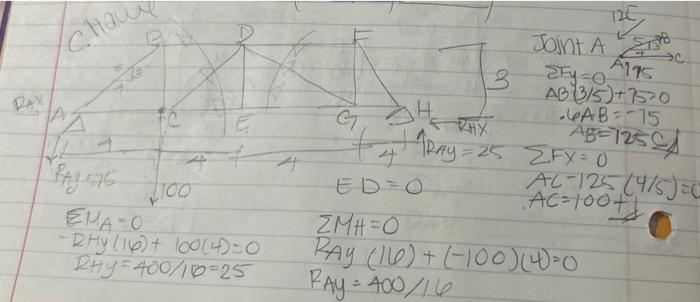 C. Hauw
B D F
3
5 3
4
RAX A C E G H
RHX
4 4 4 4
RAy=75 RHy=25
100
ED=0
ΣMA=0
-RHy(16)+100(4)=0
RHy=400/16=25
ΣMH=0
RAy(16)+(-100)(4)=0
RAy=400/16
12E
Joint A
5 3 B
4 C
A 75
ΣFy=0
AB(3/5)+75=0
.6AB=-75
AB=125 C
ΣFX=0
AC-125(4/5)=0
AC=100 T